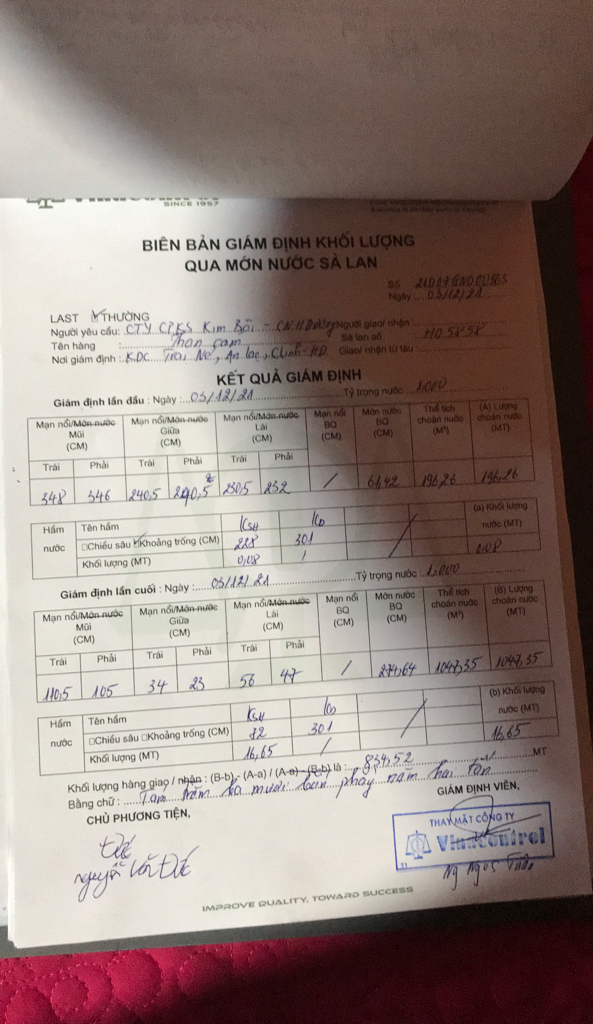 SINCE 1957
BIÊN BẢN GIÁM ĐỊNH KHỐI LƯỢNG
QUA MỚN NƯỚC SÀ LAN
Số
Ngày : 03/12/21
LAST THƯỜNG
Người yêu cầu: CTY CPKS Kim Bôi - CN.H Dương Người giao/ nhận
Tên hàng : Than cám Sà lan số: HD 5858
Nơi giám định : KDC Trại Nẻ, An lạc, Chí linh-HD Giao/ nhận từ tàu
KẾT QUẢ GIÁM ĐỊNH
Giám định lần đầu : Ngày : 03/12/21 Tỷ trọng nước : 1,000
Mạn nổi/Mớn nước Mũi (CM) Mạn nổi/Mớn nước Giữa (CM) Mạn nổi/Mớn nước Lái (CM) Mạn nổi BQ (CM) Mớn nước BQ (CM) Thể tích choán nước (M³) (A) Lượng choán nước (MT)
Trái Phải Trái Phải Trái Phải
348 346 240,5 240,5 230,5 232 / 196,26 196,26
Hầm nước Tên hầm KSH (a) Khối lượng nước (MT)
□Chiều sâu ☑Khoảng trống (CM) 228 301
Khối lượng (MT) 0,08 / 0,08
Giám định lần cuối : Ngày : 03/12/21 Tỷ trọng nước : 1,000
Mạn nổi/Mớn nước Mũi (CM) Mạn nổi/Mớn nước Giữa (CM) Mạn nổi/Mớn nước Lái (CM) Mạn nổi BQ (CM) Mớn nước BQ (CM) Thể tích choán nước (M³) (B) Lượng choán nước (MT)
Trái Phải Trái Phải Trái Phải
110,5 105 34 23 56 47 / 274,64 1047,35 1047,35
Hầm nước Tên hầm KSH (b) Khối lượng nước (MT)
□Chiều sâu □Khoảng trống (CM) 301
Khối lượng (MT) 16,65 / 16,65
Khối lượng hàng giao / nhận : (B-b) - (A-a) / (A-a) - (B-b) là : 834,52 MT
Bằng chữ : Tám trăm ba mươi bốn phẩy năm hai tấn
CHỦ PHƯƠNG TIỆN, GIÁM ĐỊNH VIÊN,
THAY MẶT CÔNG TY
Vinacontrol
Đức
nguyễn Văn Đức
Ng Ngọc
IMPROVE QUALITY, TOWARD SUCCESS